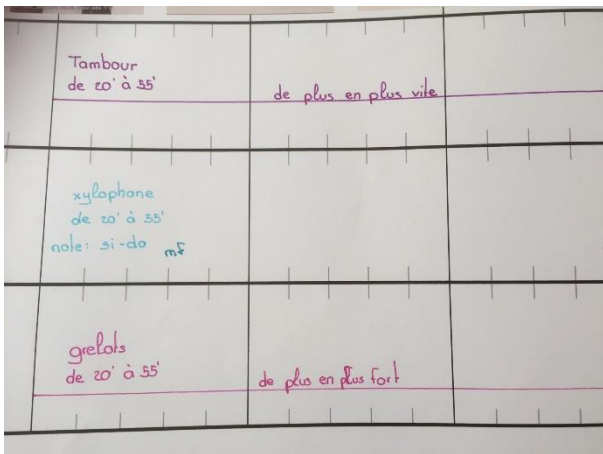 Tambour
de 20' à 55'
de plus en plus vite
xylophone
de 20' à 55'
note: si-do mf
grelots
de 20' à 55'
de plus en plus fort